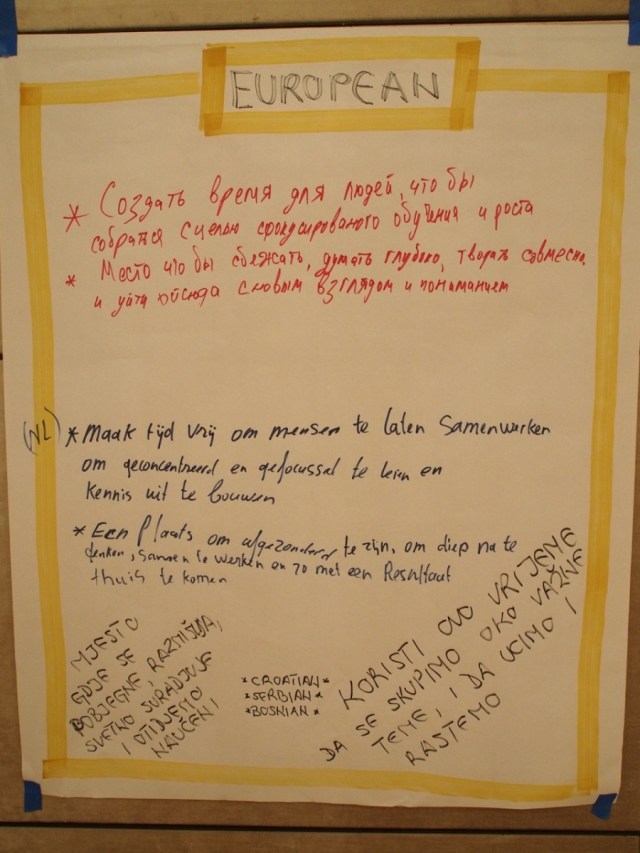 EUROPEAN
* Создать время для людей, что бы
собраться с целью сфокусированого обучения и роста
* Место что бы сбежать, думать глубоко, творить совместно,
и уйти отсюда с новым взглядом и пониманием
(NL) * Maak tijd vrij om mensen te laten samenwerken
om geconcentreerd en gefocussed te leren en
kennis uit te bouwen
* Een plaats om afgezonderd te zijn, om diep na te
denken, samen te werken en zo met een Resultaat
thuis te komen
MJESTO
GDJE SE
POBJEGNE, RAZMIŠLJA,
SVETNO SURADJUJE
I OTIDJEMO
NAUČENI
*CROATIAN*
*SERBIAN*
*BOSNIAN*
KORISTI OVO VRIJEME
DA SE SKUPIMO OKO VAŽNE
TEME, I DA UCIMO I
RASTEMO